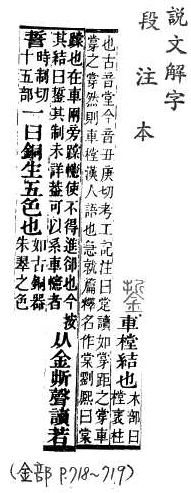 說文解字
段注本
車樘結也 木部曰
樘衺柱
也古音堂今音丑庚切考工記注曰堂讀如牚距之牚車
牚之牚然則車樘漢人語也急就篇釋名作棠劉熙曰棠
也在車兩旁幰使不得進卻也今按
其結曰銴其制未詳蓋可以系車幰者
从金折聲讀若
誓 時制切
十五部
一曰銅生五色也 如古銅器
朱翠之色
(金部 P.718~719)